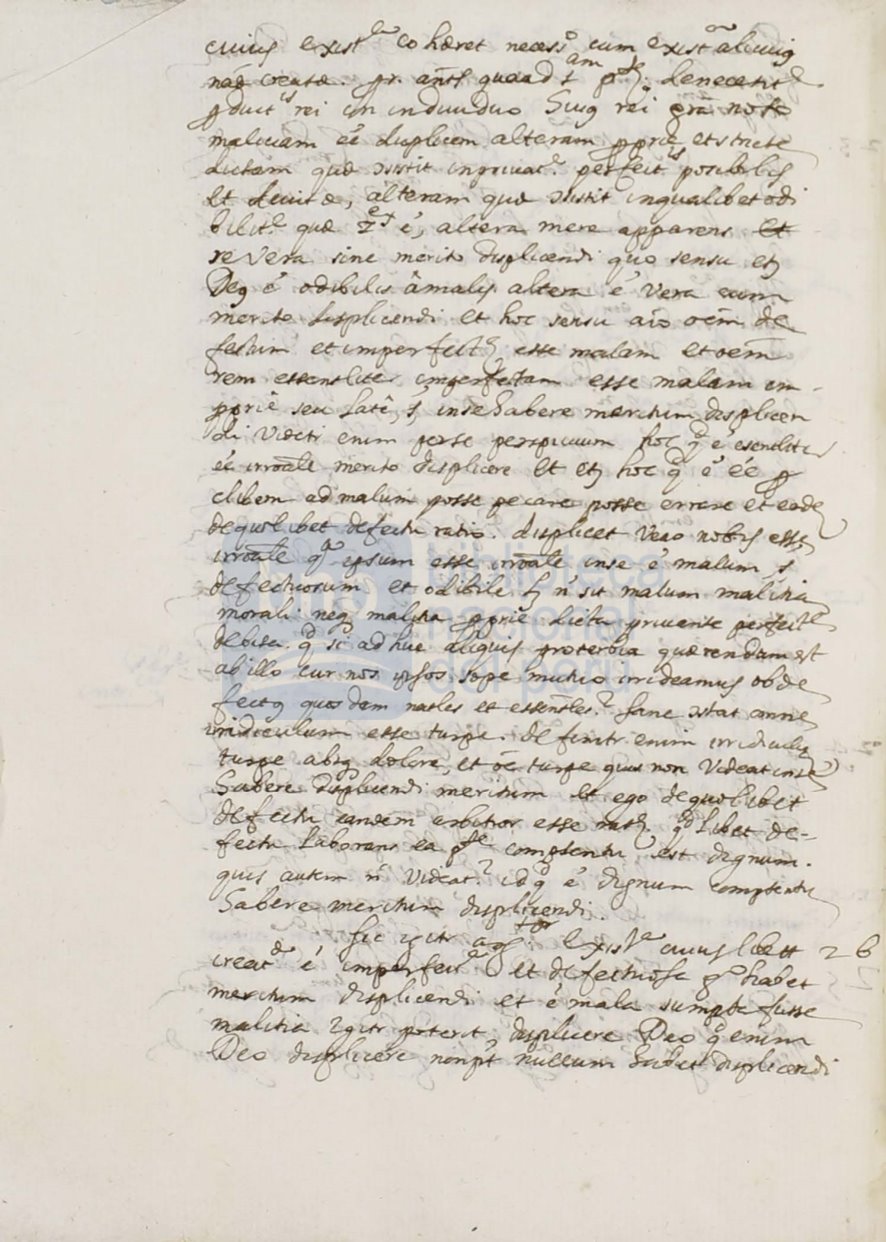 cuius exist.ª cohæret necess.º cum exist.ª alicuius
naæ creatæ. pr. ants quoad 1.am p.tem: de necessit.e
product.is rei in individuo Sup rei
malitiam éé duplicem alteram pprie et stricte
dictam quæ sistit in privat.e perfect.is possibilis
et devitæ, alteram quæ sistit in qualibet odi
bilit.e quæ é, altera mere apparens
re vera sine merito displicendi quo sensu etz
Deq é odibilis â malis altera é vera cum
merito displicendi et hoc sensu aio oem de
fectum et imperfect. esse malam et oem
rem essensliter imperfectam esse malam im
pprié seu laté, in se habere meritum displicen
di videtr enim per se perspicuum hoc q é
éé irroale merito displicere et etz hoc q é éé pr
clibem ad malum posse pecare posse errare et eadē
de quolibet defectu ratio. displicet vero nobis esse
irroale qª ipsum esse irroale in se é malum
defectuosum et odibile n sit malum malitia
morali neq malitia pprié dicta privante perfect.e
debita. q si ad huc aliquis proterbia quærendum est
ab illo cur nos ipsos sæpe mutuo irrideamus ob de
fectus quosdam natles et essentles? sane omne
irridiculum esse turpe. definitr enim irridiculu
turpe absq dolore, et oe turpe quis non videat in se
habere displicendi meritum et ego de quolibet
defectu eandem arbitror esse ratz. q libet de-
fectu laborans ea p.te comptentu est dignum.
quis autem n videat? id q é dignum comptentu
habere meritum displicendi.
Sic igitr exist.ª cuius libett 26
creat.æ é imperfect.ª et defectuosa habet
meritum displicendi et é mala sumpte
malitia igitr poterit displicere Deo q enim
Deo displicere non pt nullum habet displicendi
biblioteca
nacional
del perú